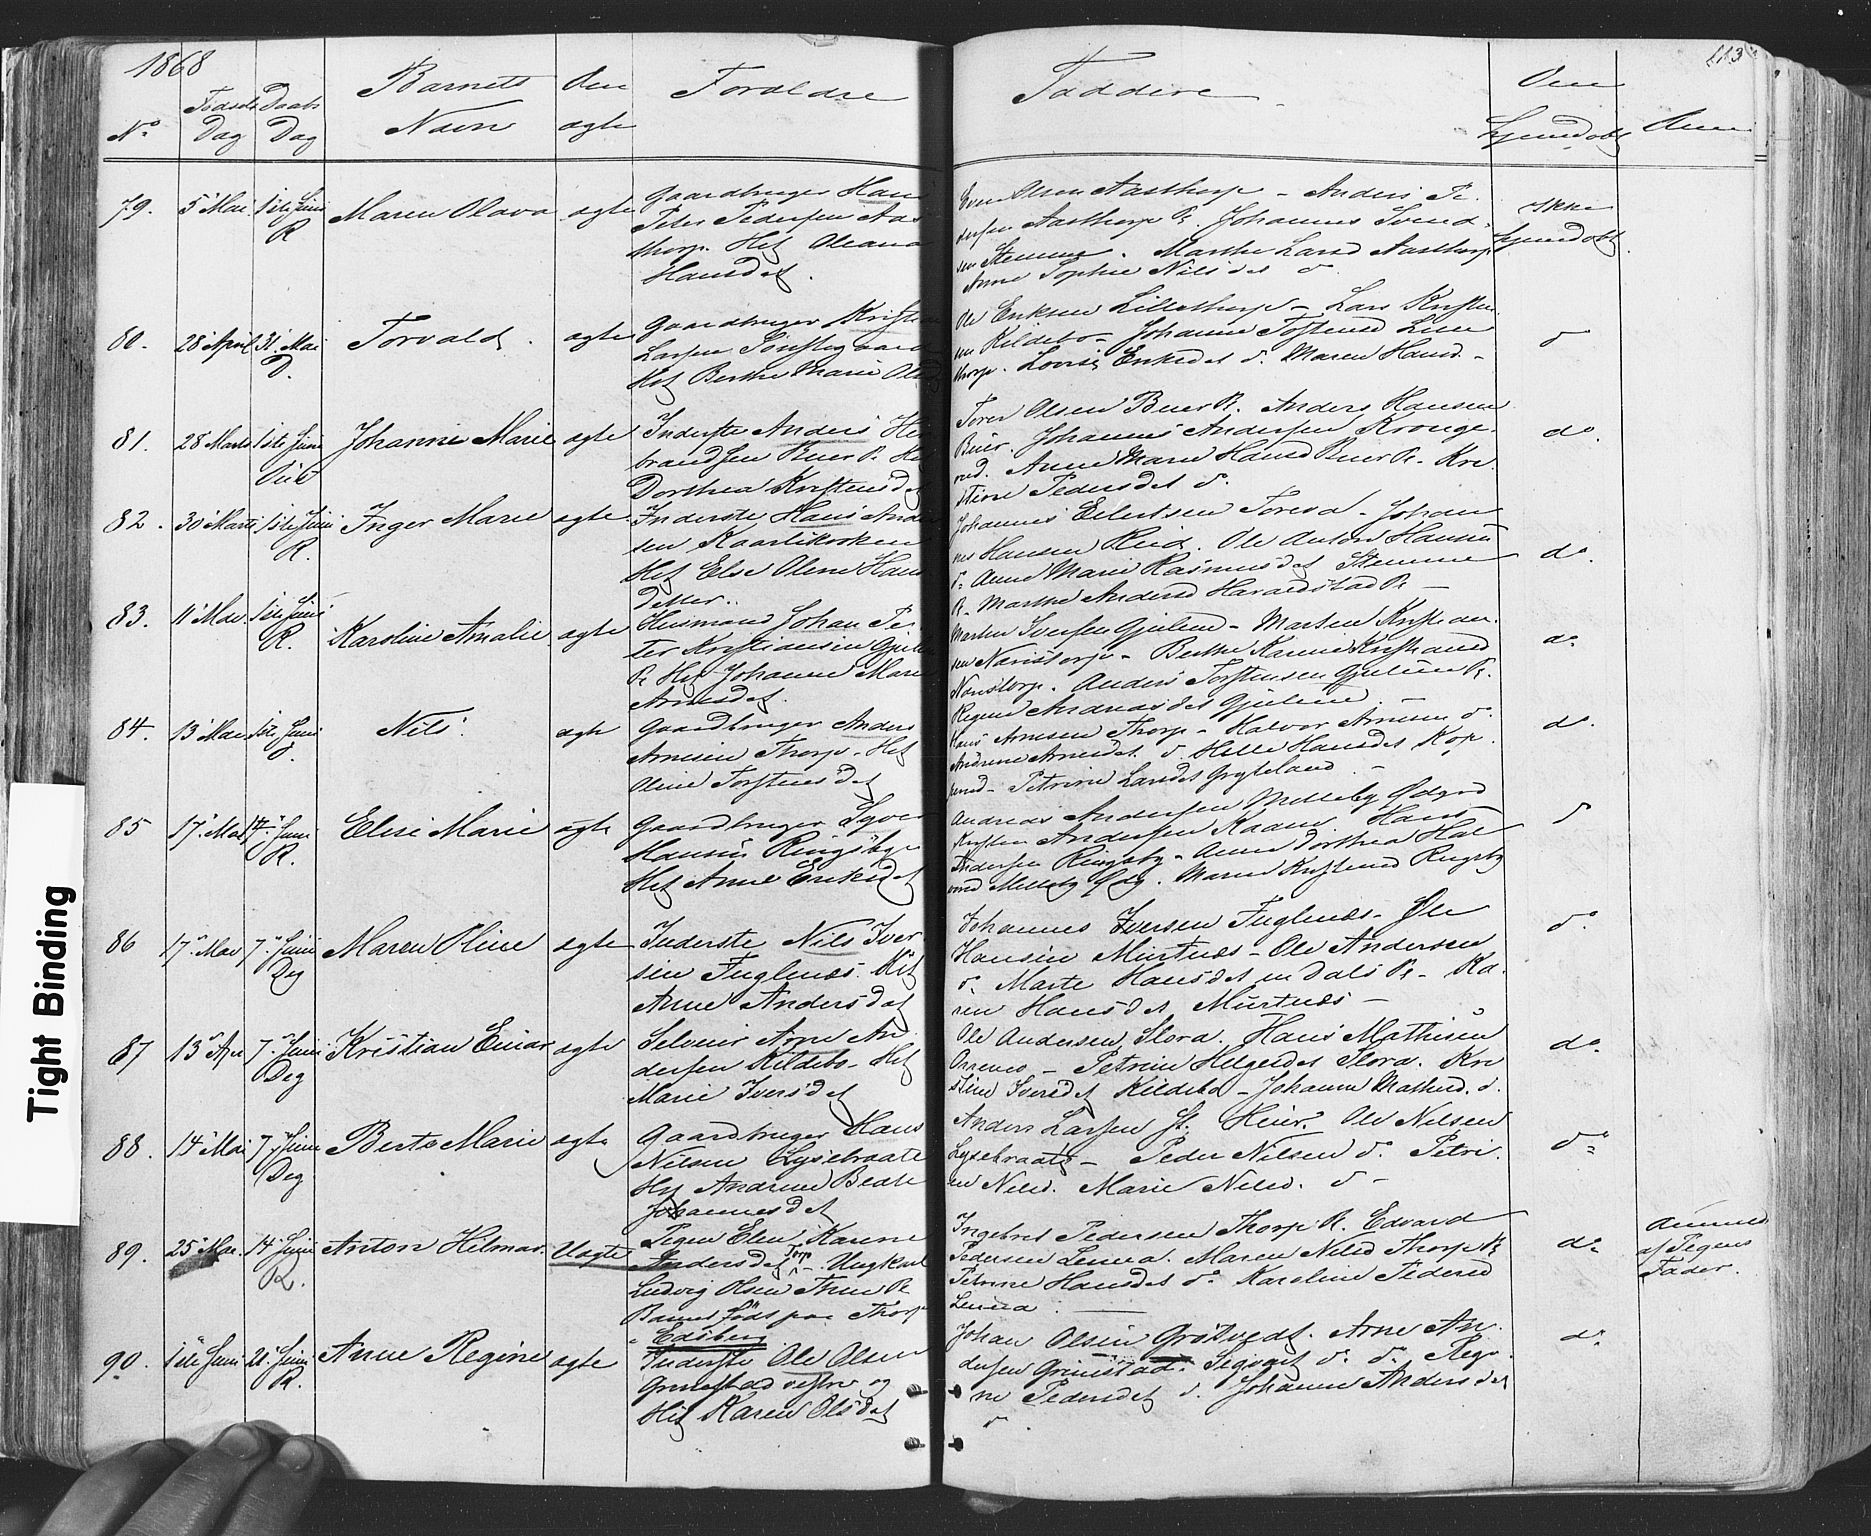 1868
113
No
Fødsels Dag
Daabs Dag
Barnets Navn
Om ægte
Forældre
Faddere
Om hjemdøbt
Anm
79. 5 Mai 1ste Juni R Maren Olava ægte
Gaardbruger Hans
Peter Pedersen Aas
thorp. Hst Oleana
Hansdat.
Even Olsen Aasthorp - Anders Pe
dersen Aasthorp R. Johannes Svend
sen Stemme. Marthe Larsd Aasthorp
Anne Sophie Nilsdat do
ikke hjemdøbt
80. 28 April 31. Mai Torvald. ægte
Gaardbruger Kristian
Larsen
Hst Berthe Marie Olsd
Ole Eriksen Lillethorp - Lars Kristen
sen Kildebo - Johanne Torstensd Lille
thorp. Lovise Eriksdat do. Maren Hansd -
do
81. 28 Marts 1ste Juni Johanne Marie ægte
Inderste Anders He
brandsen Buer R. Hst
Dorthea Kristensdat
Torer Olsen Buer R. Anders Hansen
Buer. Johannes Andersen Kronge
rød. Anne Marie Hansd Buer R. Kri
stine Pedersdat do.
do.
82. 30 Marts 1ste Juni R. Inger Marie ægte.
Inderste Hans Ander
sen Kaatikroken
Hst Else Oline Hans
datter..
Johannes Eilertsen Toresø - Johan
nes Hansen Heid. Ole Anton Hansen
do. Anne Marie Rasmusdat Stemme
R. Marthe Andersd Haraldstad R -
do.
83. 11 Mai 1ste Juni R. Karoline Amalie ægte
Husmand Johan Pe
ter Kristiansen Gjulem
R Hst Johanne Marie
Arnesdat.
Morten Iversen Gjulem - Morten Kristian
sen Navestorp - Berthe Karine Kristiansd
Navestorp. Anders Torstensen Gjulem R.
Regine Andreasdat Gjulem. -
do
84. 13 Mai 1ste Juni Nils. ægte
Gaardbruger Anders
Arnesen Thorp - Hst
Oline Torstensdat
Hans Arnesen Thorp - Halvor Arnesen do.
Andrine Arnesdat do Helle Hansdat Kop
perud - Petrine Larsdat Gryteland. -
do.
85 17 Mai 14 Juni R. Elise Marie ægte
Gaardbruger Syver
Hansen Ringsby
Hst Anne Eriksdat
Andreas Andersen Melleby Ødegrd
Kristen Andersen Kaane. Hans
Andersen Ringsby - Anne Dorthea Hal
vorsd Melleby Ødg. Maren Kristensd Ringsby
do
86 17 Mai 7 Juni Deg Maren Oline ægte
Inderste Nils Iver
sen Fuglenæs. Hst
Anne Andersdat
Johannes Iversen Fuglenæs - Ole
Hansen Murtnæs - Ole Andersen
do. Marte Hansdat en Dals R. - Ka
ren Hansdat Murtnæs -
do
87 13 Apr 7 Juni Deg Kristian Einar ægte
Selveier Arne An
dersen Kildebo - Hst
Marie Iversdat
Ole Andersen Slora. Hans Mathisen
- Petrine Helgesdat Slora. Kri
stine Iversdat Kildebo - Johanne Mathisd. do.
do.
88. 14 Mai 7 Juni Deg Berte Marie ægte
Gaardbruger Hans
Nilsen Lysebraate
Hst Andrine Beate
Johannesdat
Anders Larsen St. Heier. Ole Nilsen
Lysebraate - Peder Nilsen do. Petri
ne Nilsd. Marie Nilsd. do -
do
89. 25 Mai. 14 Juni R. Anton Hilmar Uægte
Pigen Elen Karine
Andersdat Torp - Ungkarl
Ludvig Olsen Thue R
Barnet født paa Thorp
i Edsberg
Ingebret Pedersen Thorp R. Edvard
Pedersen Lenea. Maren Nilsd Thorp R
Petrine Hansdat do Karoline Pedersd
Lenea.
do
Anmeldt
af Pigens
Fader.
90. 1ste Juni 21 Juni R. Anne Regine ægte
Inderste Ole Olsen
Grimstad vestre og
Hst Karen Olsdat
Johan Olsen Grøtvedt. Arne An
dersen Grimstad. Sigvart do. do. Regi
ne Pedersdat do. Johanne Andersdat
do
do
Tight Binding